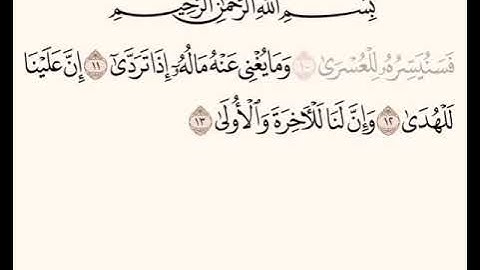 بِسْمِ اللَّهِ الرَّحْمَٰنِ الرَّحِيمِ
فَسَنُيَسِّرُهُۥ لِلْعُسْرَىٰ ١٠ وَمَا يُغْنِى عَنْهُ مَالُهُۥٓ إِذَا تَرَدَّىٰٓ ١١ إِنَّ عَلَيْنَا
لَلْهُدَىٰ ١٢ وَإِنَّ لَنَا لَلْـَٔاخِرَةَ وَٱلْأُولَىٰ ١٣